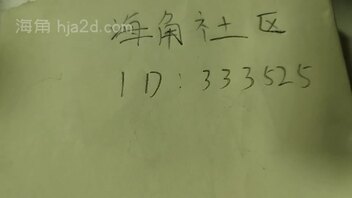 海角 hja2d.com
海角社区
ID: 333525